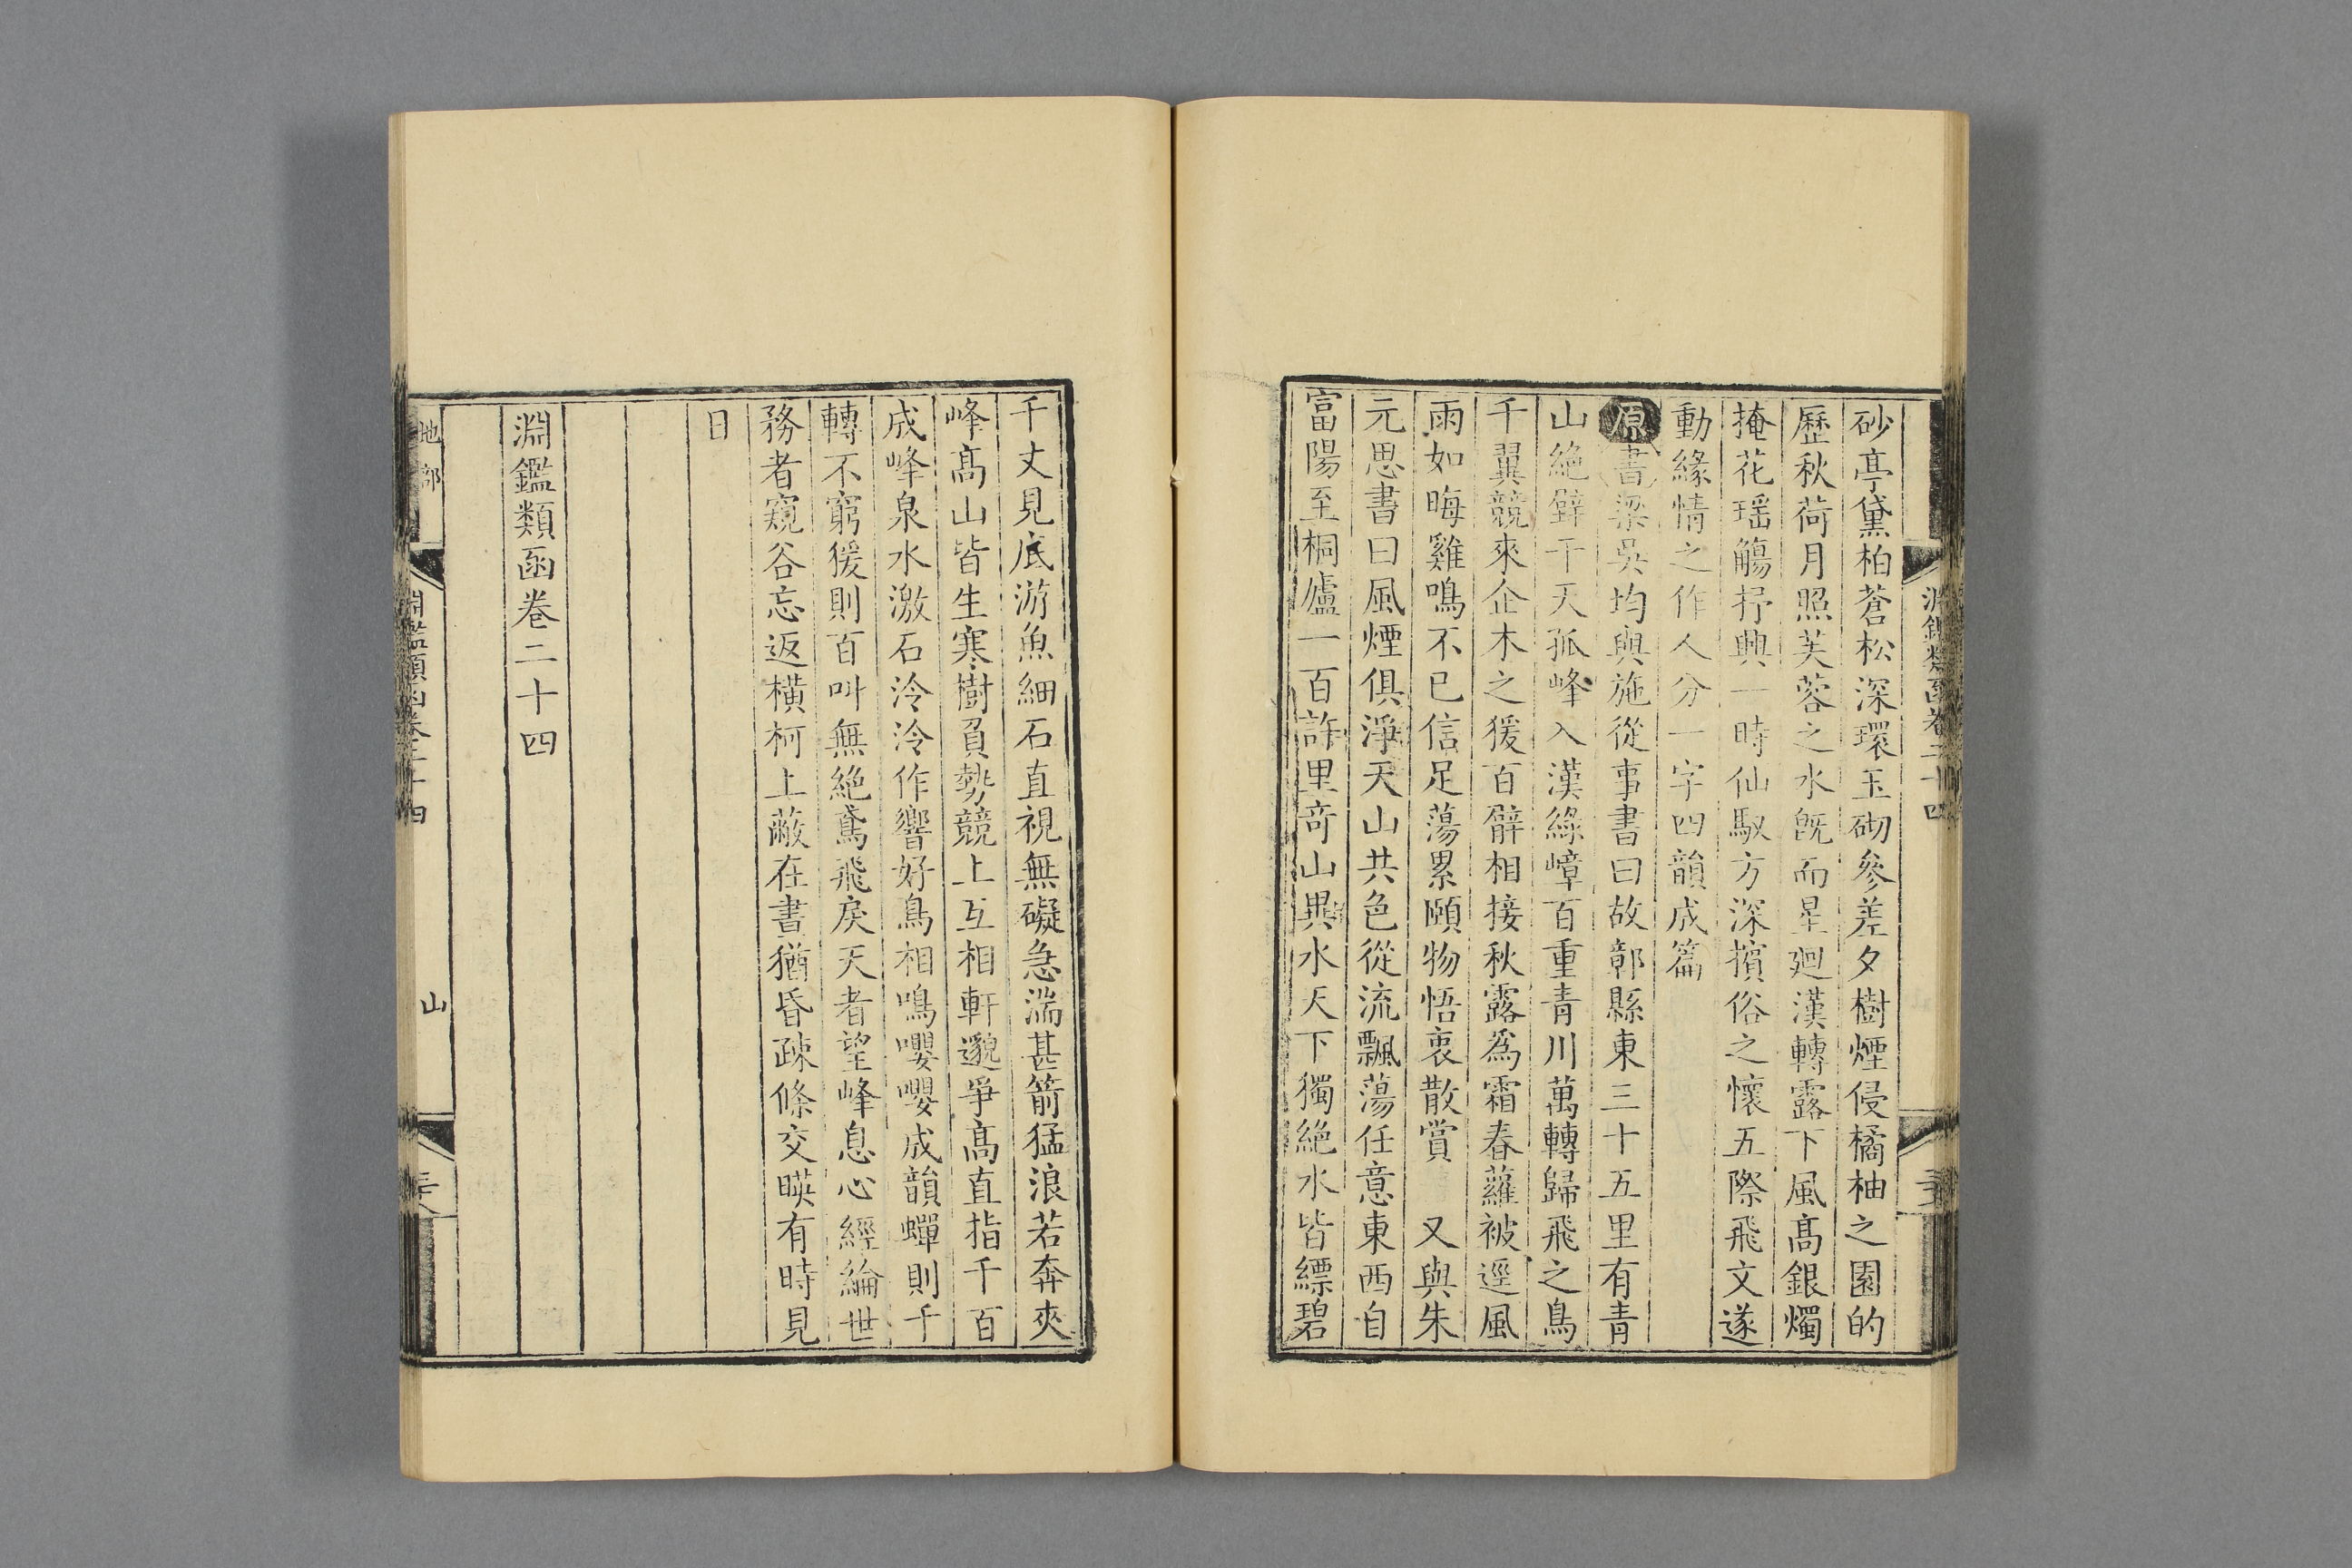 砂亭黛柏蒼松深環玉砌參差夕樹煙侵橘柚之園的
歷秋荷月照芙蓉之水旣而星廻漢轉露下風髙銀燭
掩花瑶觴抒興一時仙馭方深擯俗之懷五際飛文遂
動緣情之作人分一字四韻成篇
原書梁吳均與施從事書曰故鄣縣東三十五里有青
山絶壁干天孤峰入漢綠嶂百重青川萬轉歸飛之鳥
千翼競來企木之猨百臂相接秋露爲霜春蘿被逕風
雨如晦雞鳴不已信足蕩累頤物悟衷散賞 又與朱
元思書曰風煙俱淨天山共色從流飄蕩任意東西自
富陽至桐廬一百許里竒山異水天下獨絶水皆縹碧
淵鑑類函卷二十四
千丈見底游魚細石直視無礙急湍甚箭猛浪若奔夾
峰髙山皆生寒樹負勢競上互相軒邈爭髙直指千百
成峰泉水激石泠泠作響好鳥相鳴嚶嚶成韻蟬則千
轉不窮猨則百叫無絶鳶飛戾天者望峰息心經綸世
務者窺谷忘返橫柯上蔽在晝猶昏疎條交暎有時見
日
淵鑑類函卷二十四
地部
淵鑑類函卷二十四
山